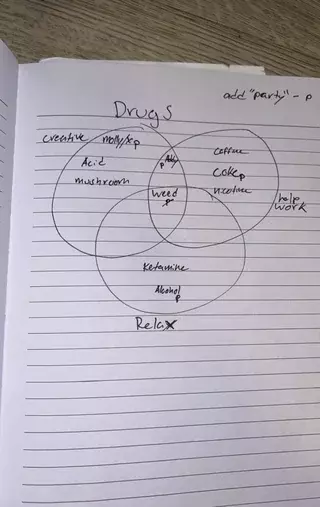 add "party" - p
Drugs
creative molly/x p
Acid
mushroom
p Addy
coffee
coke p
nicotine
weed
p
help
work
Ketamine
Alcohol
p
Relax